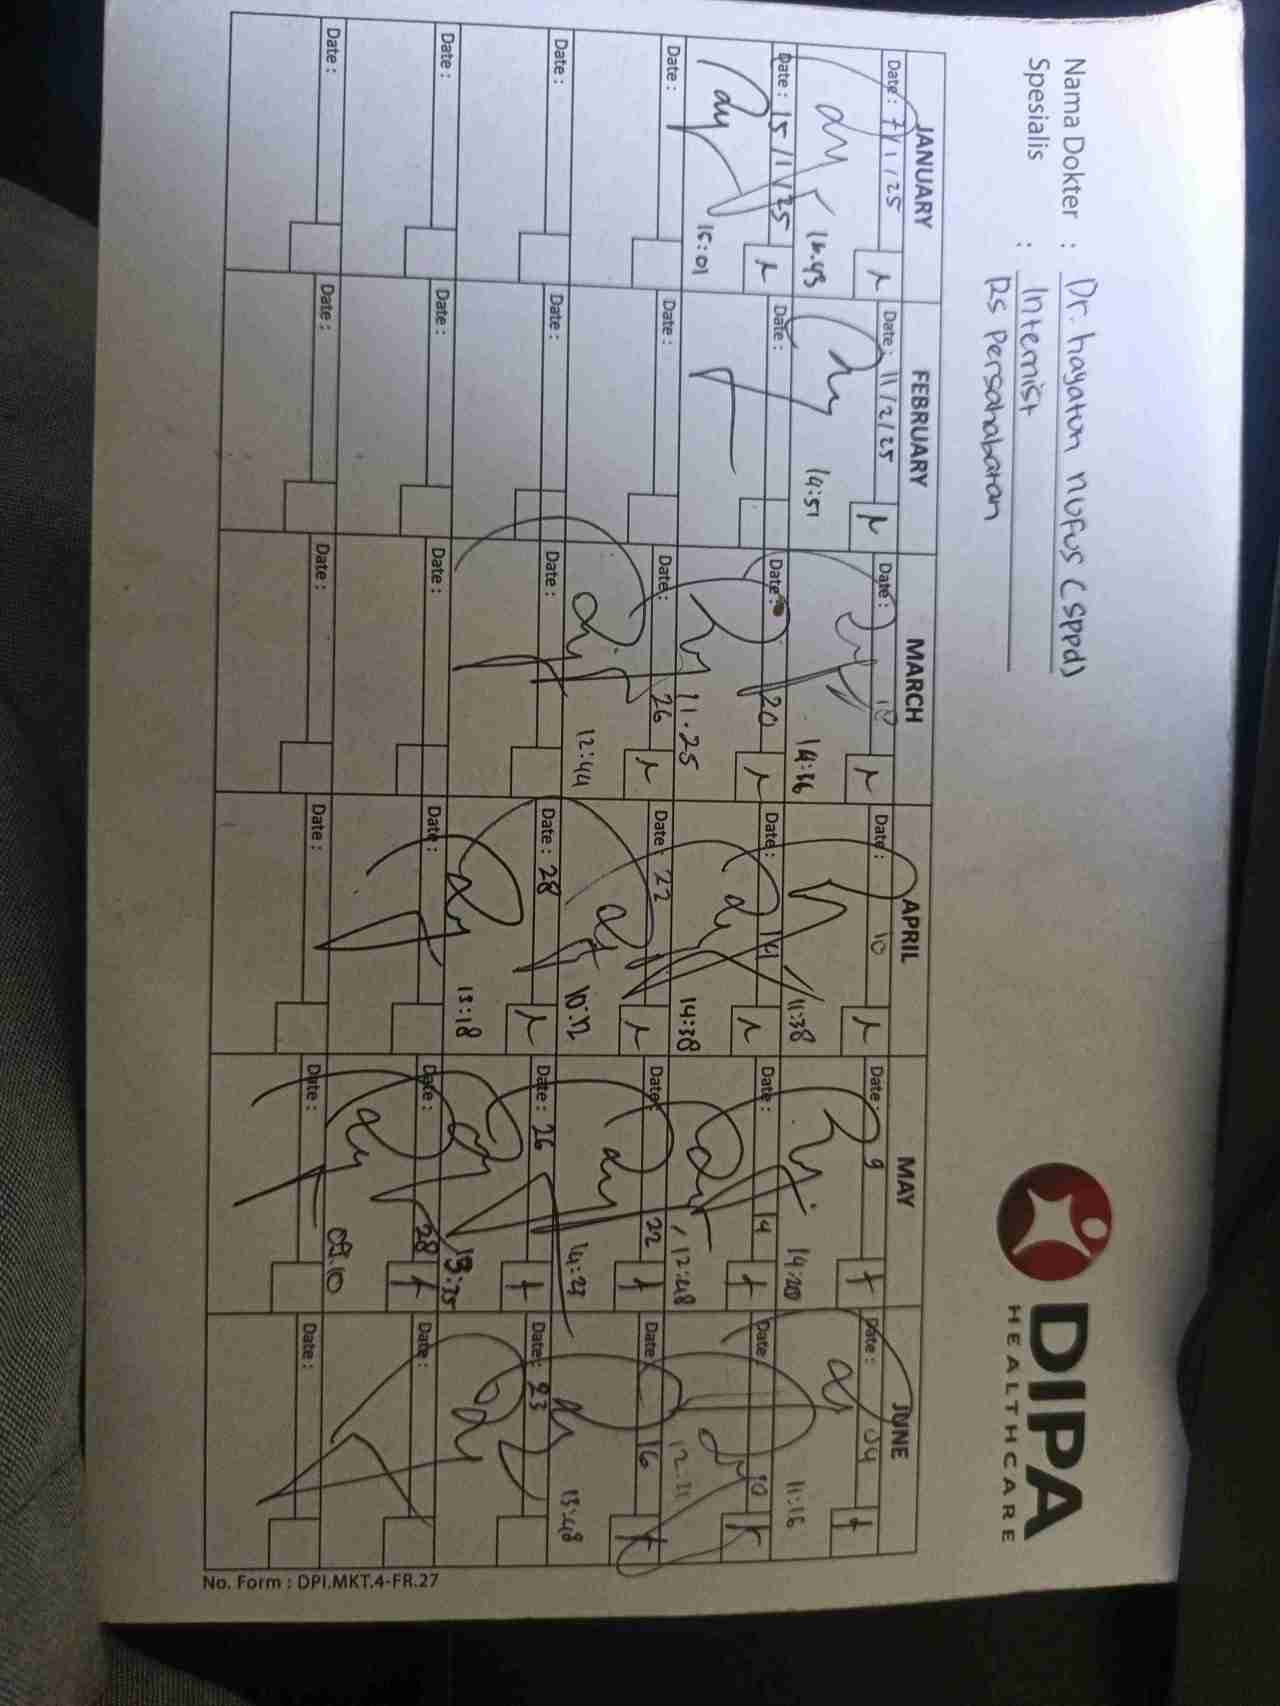 Nama Dokter : Dr. hayatun nufus (sppd)
Spesialis : Internist
RS Persahabatan
DIPA
HEALTHCARE
JANUARY FEBRUARY MARCH APRIL MAY JUNE
Date : 7/1/25 Date : 11/2/25 Date : 18 Date : 10 Date : 9 Date : 04
14:51 14:36 11:38 14:20 11:16
Date : 15/1/25 Date : Date : 20 Date : 14 Date : 14 Date : 10
15:01 11.25 14:38 12:48 12:21
Date : Date : Date : 26 Date : 22 Date : 22 Date : 16
12:44 10:12 14:27 13:48
Date : Date : Date : Date : 28 Date : 26 Date : 23
13:18 13:35
Date : Date : Date : Date : Date : 28 Date :
09.10
Date : Date : Date : Date : Date : Date :
No. Form : DPI.MKT.4-FR.27